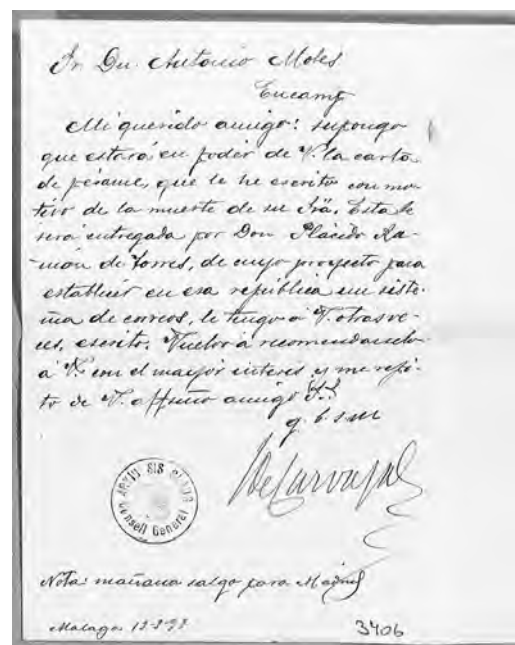 Sr. Dn. Antonio Moles
Encamp
Mi querido amigo: supongo
que estará en poder de V. la carta
de pésame, que le he escrito con mo-
tivo de la muerte de su Sra. Esta le
será entregada por Don Plácido Ra-
món de Torres, de cuyo proyecto para
establecer en esa república un siste-
ma de correos, le tengo a V. otras ve-
ces, escrito. Vuelvo á recomendárselo
á V. con el mayor interés y me repi-
to de V. affmo amigo S.S.
q. b. s. m
De Carvajal
ARXIU SIS CLAUS
Consell General
Nota: mañana salgo para Madrid
Malaga 13-3-93
3406